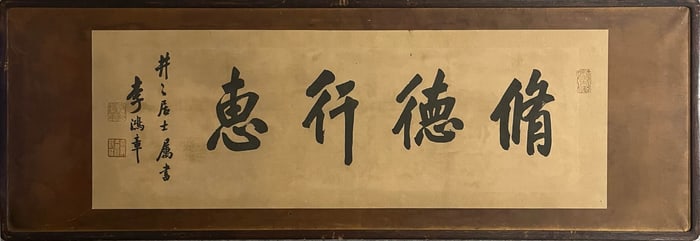 脩德行惠
井〻居士属書
李鴻章